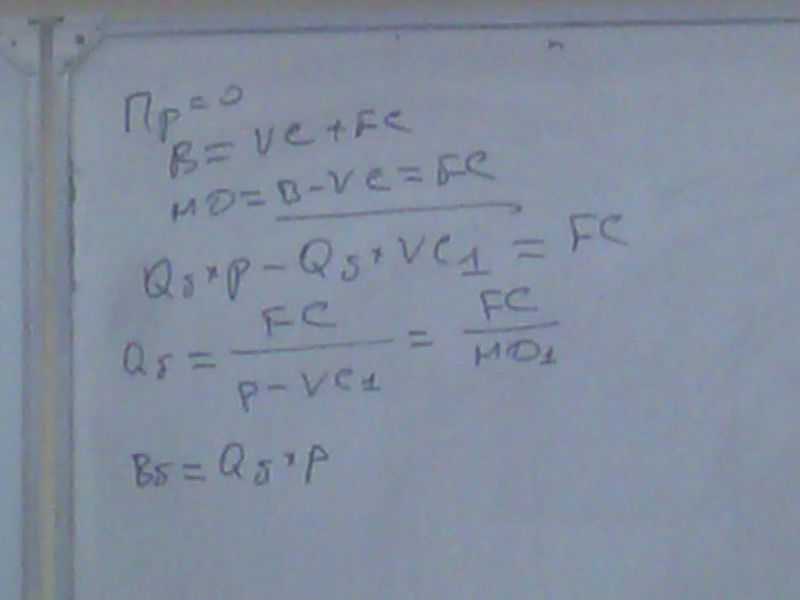 Пр = 0
В = VC + FC
МД = В - VC = FC
Qб * P - Qб * VC1 = FC
Qб = FC / P - VC1 = FC / МД1
Вб = Qб * P